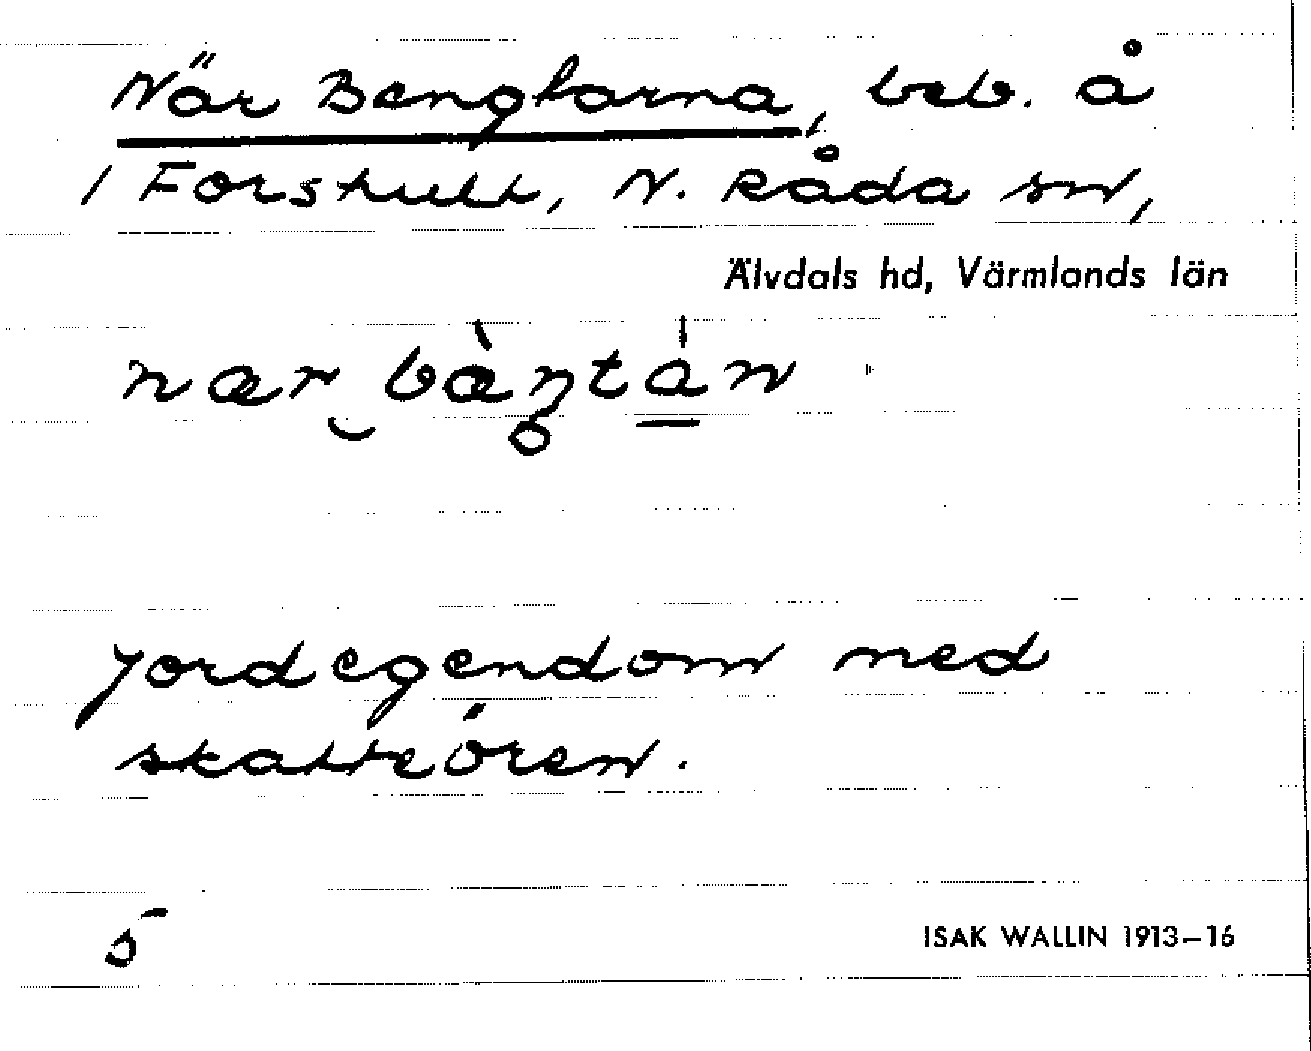 När Bengtarna, beb. å
/ Forshult, N. Råda sn,
Älvdals hd, Värmlands län
nær bæ̀ŋtán
jordegendom med
skatteören.
5
ISAK WALLIN 1913–16